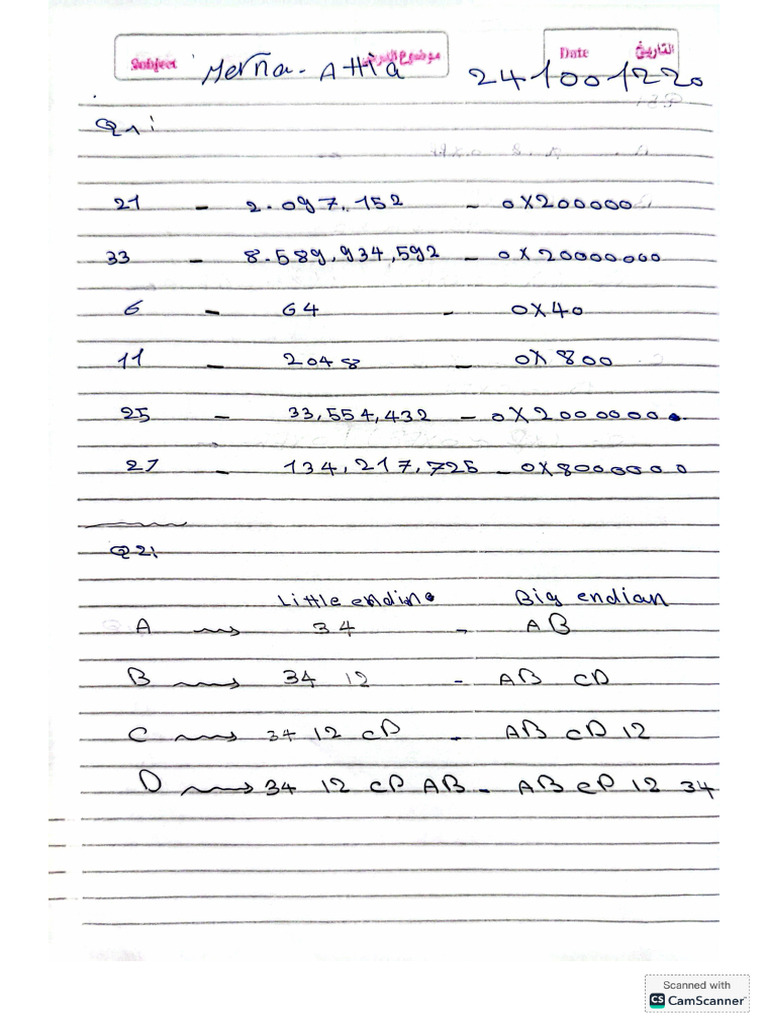 Subject Merna - Attia موضوع الدرس Date التاريخ
241001220
Q1:
21 - 2.097.152 - 0X200000
33 - 8.589,934,592 - 0X20000000
6 - 64 - 0X40
11 - 2048 - 0X800
25 - 33,554,432 - 0X2000000
27 - 134,217,725 - 0X8000000
Q2:
Little endine Big endian
A 34 - AB
B 34 12 - AB CD
C 34 12 CD - AB CD 12
D 34 12 CD AB - AB CD 12 34
Scanned with
CS CamScanner